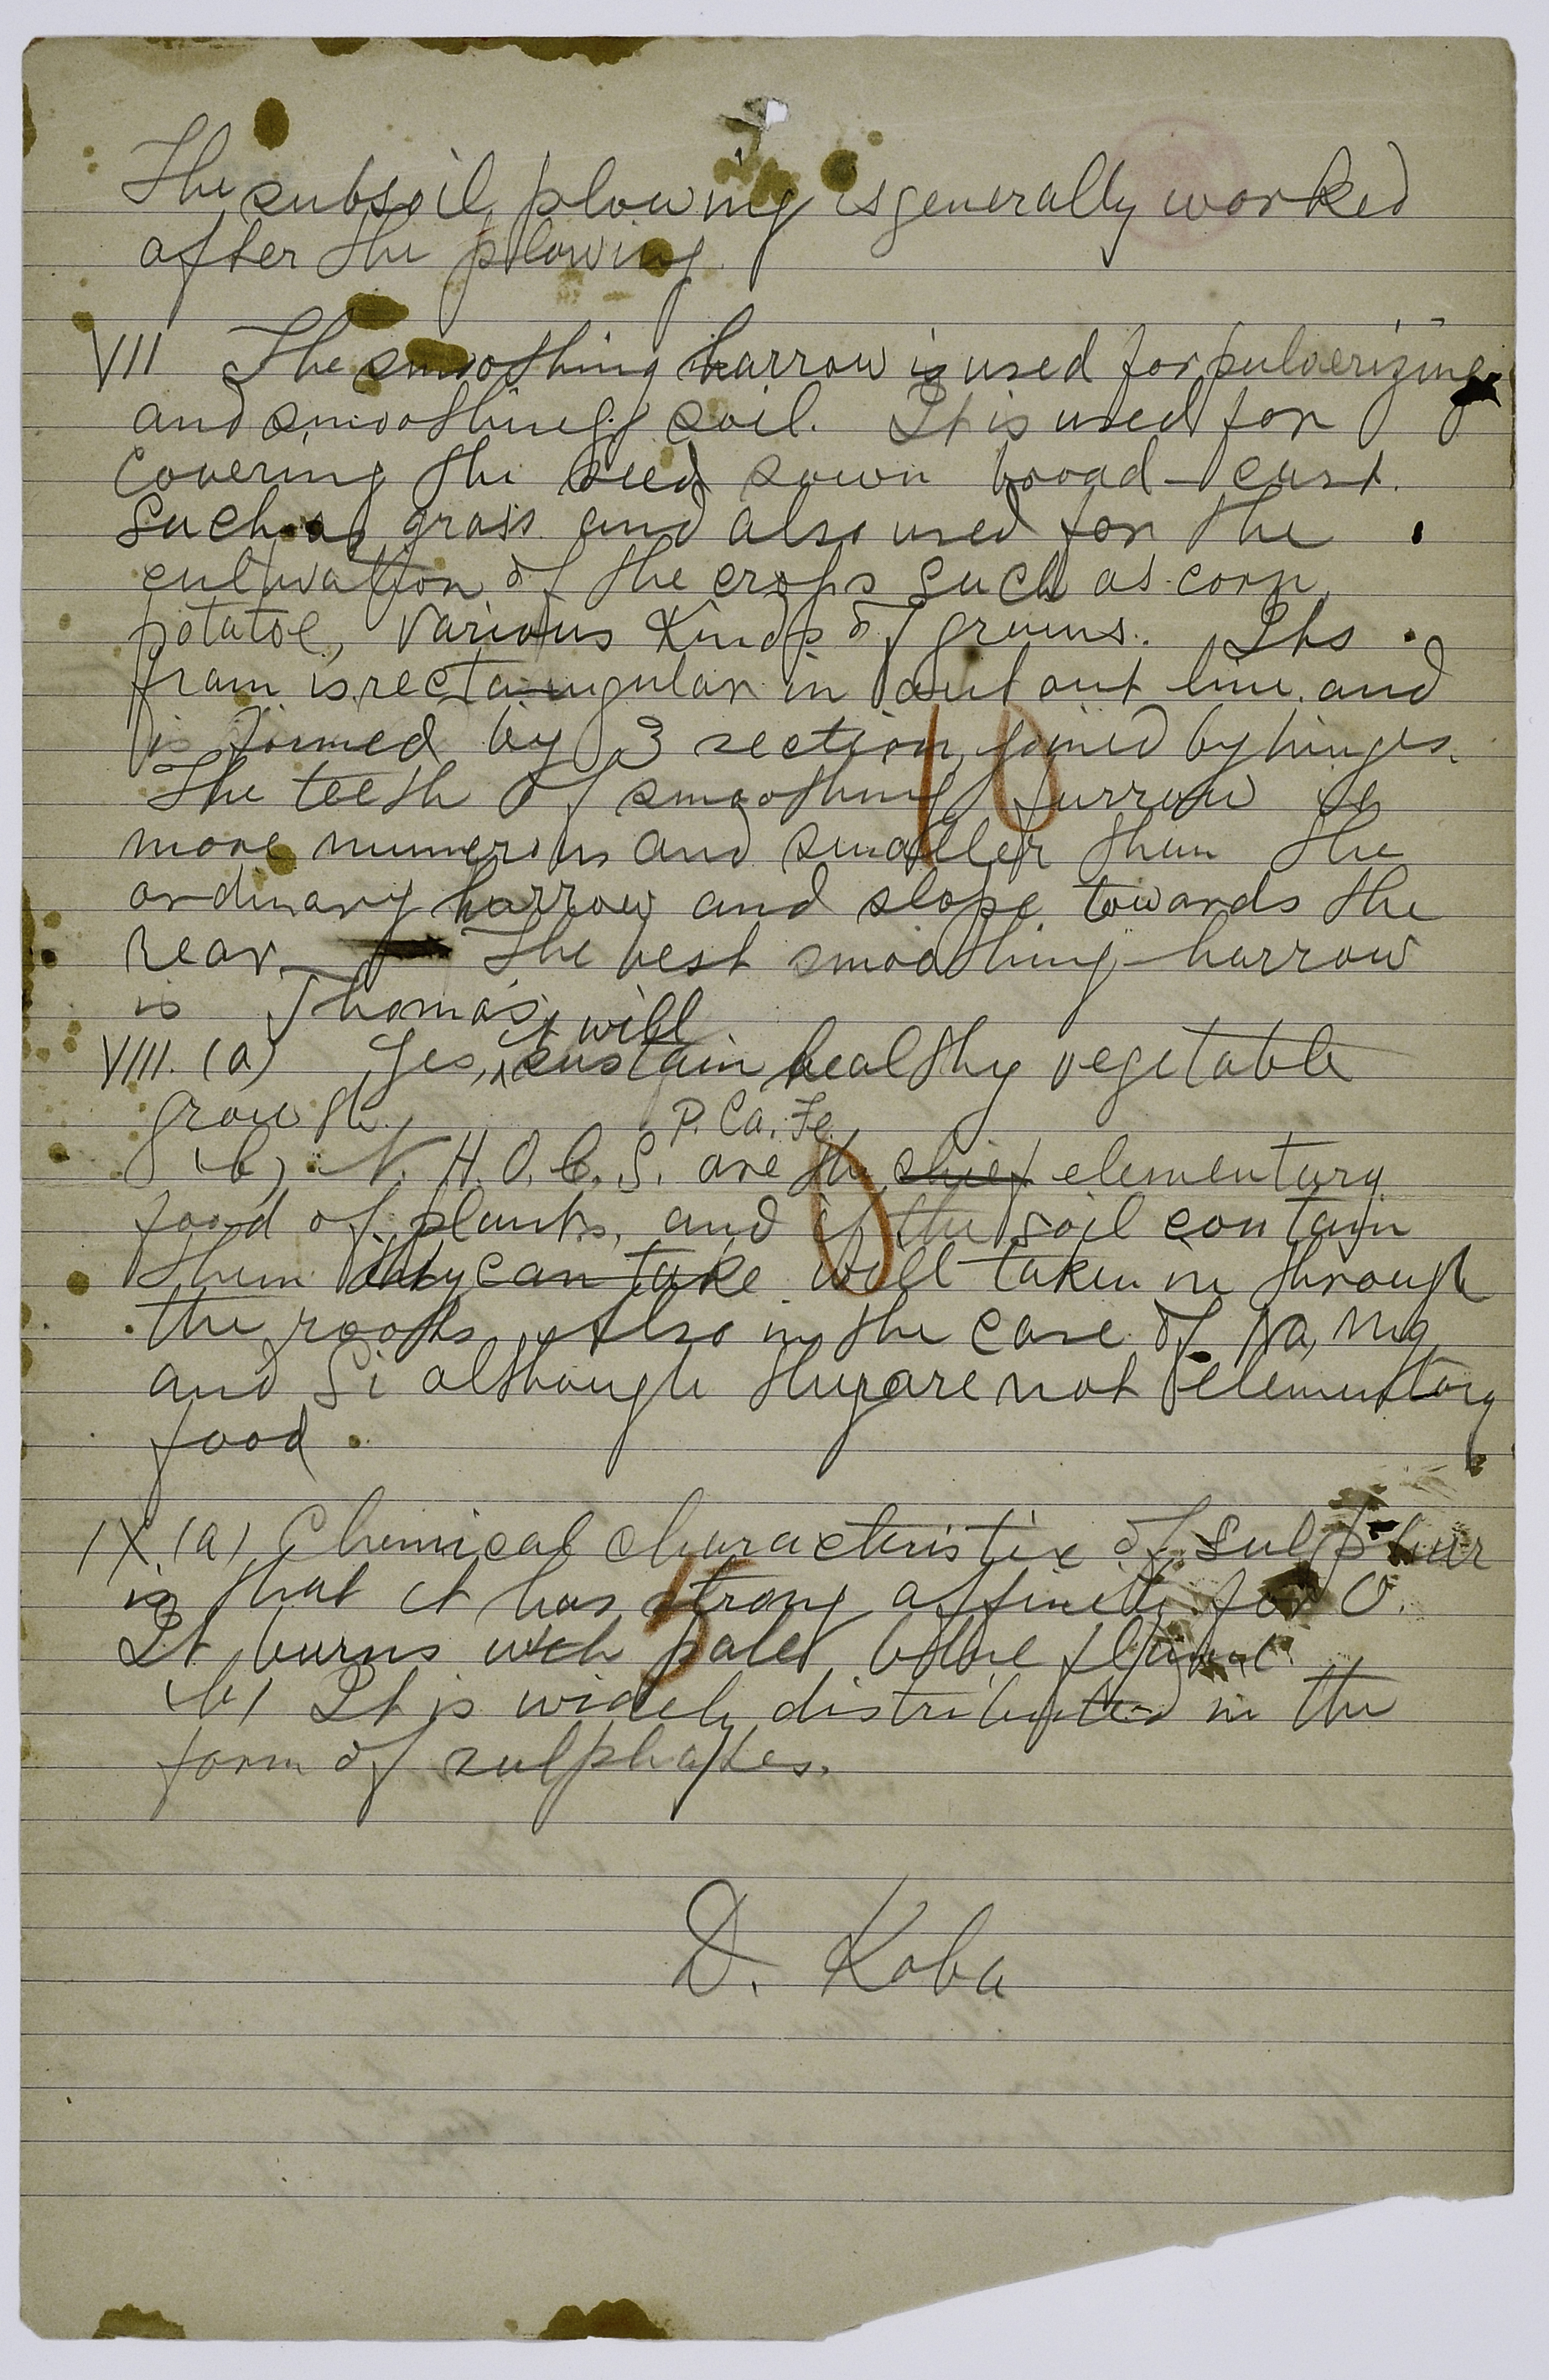 The subsoil plowing is generally worked
after the plowing.
VII The smoothing harrow is used for pulverizing
and smoothing soil. It is used for
covering the seed sown broad-cast.
Such as grass and also used for the
cultivation of the crops such as corn,
potatoe, various kinds of grains. Its
fram is rectangular in out out line and
is formed by 3 section joined by hinges.
The teeth of smoothing furrow is
more numerous and smaller than the
ordinary harrow and slope towards the
rear. The best smoothing-harrow
is Thomas
it will
VIII. (a) Yes, sustain healthy vegetable
growth.
P. Ca. Fe
(b) N. H. O. C. S. are the chief elementary
food of plants, and if the soil contain
them they can take will taken in through
the roots. Also in the case of Na, Mg
and Si although they are not elementary
food.
IX. (a) Chemical characteristic of sulphur
is that it has strong affinity for O.
It burns with pale blue flame.
(b) It is widely distributed in the
form of sulphates.
D. Koba
10
0
5